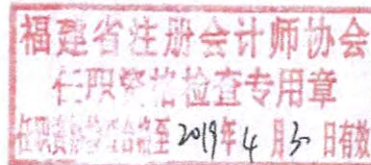 福建省注册会计师协会
任职资格检查专用章
任职资格检查合格至2019年4月3日有效